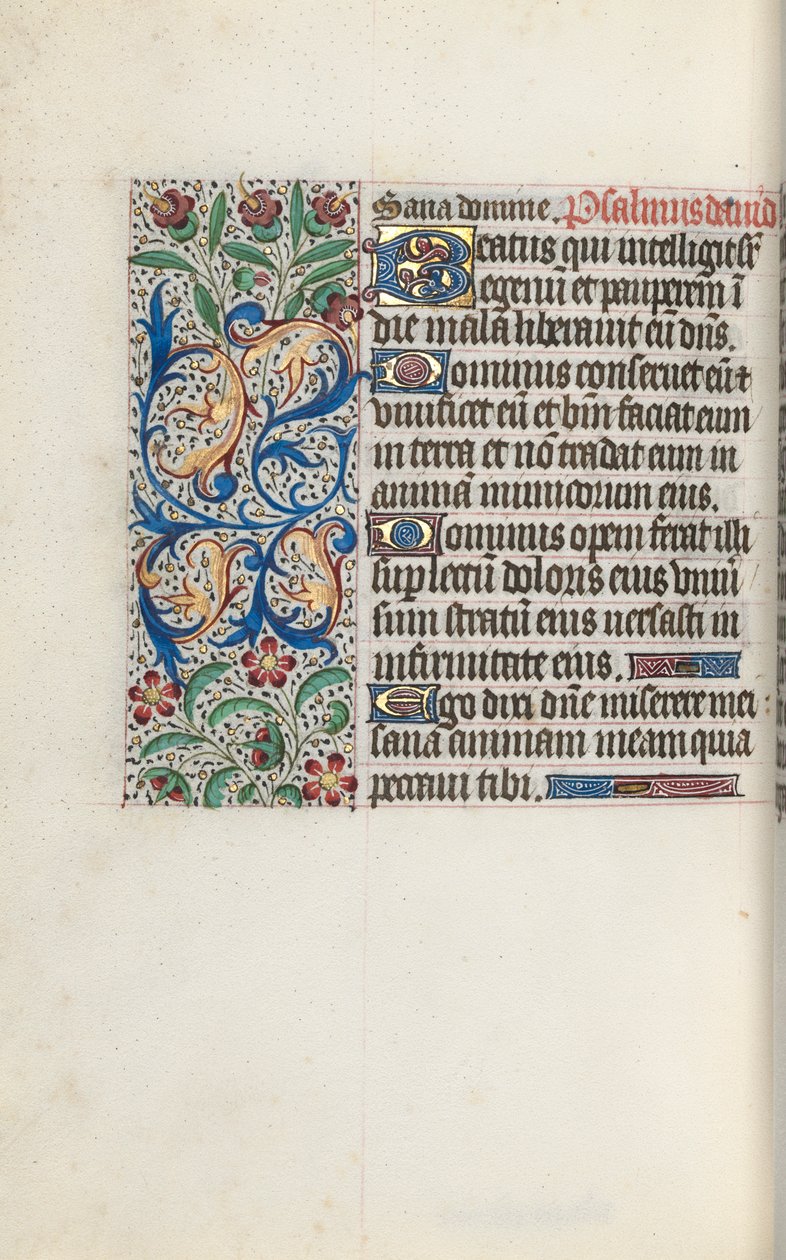 Sana domine. Psalmus dauid
Beatus qui intelligit sr̄
egenū et pauperem ī
die mala liberauit eū dn̄s.
Dominus conseruet eū ⁊
viuificet eū et btm̄ faciat eum
in terra et nō tradat eum in
animā inimicorum eius.
Dominus opem ferat illi
sup̄ lectū doloris eius vniū
sum̄ stratū eius uersasti in
infirmitate eius.
Ego dixi dn̄e miserere mei
sana animam meam quia
peccaui tibi.